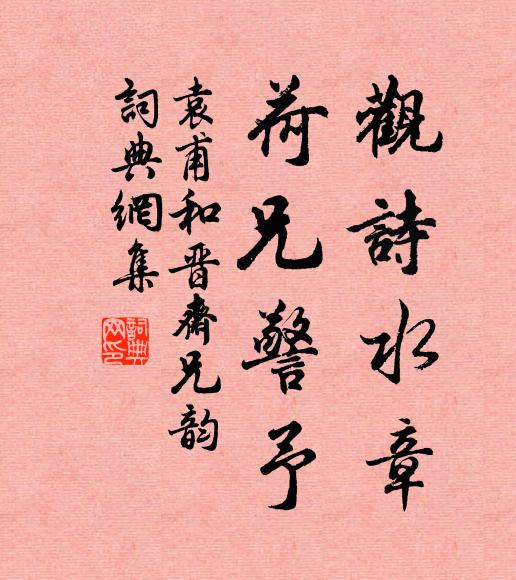 觀詩水章
荷兄警予
袁甫和晋齋兄韵
詞典網集
詞典网印